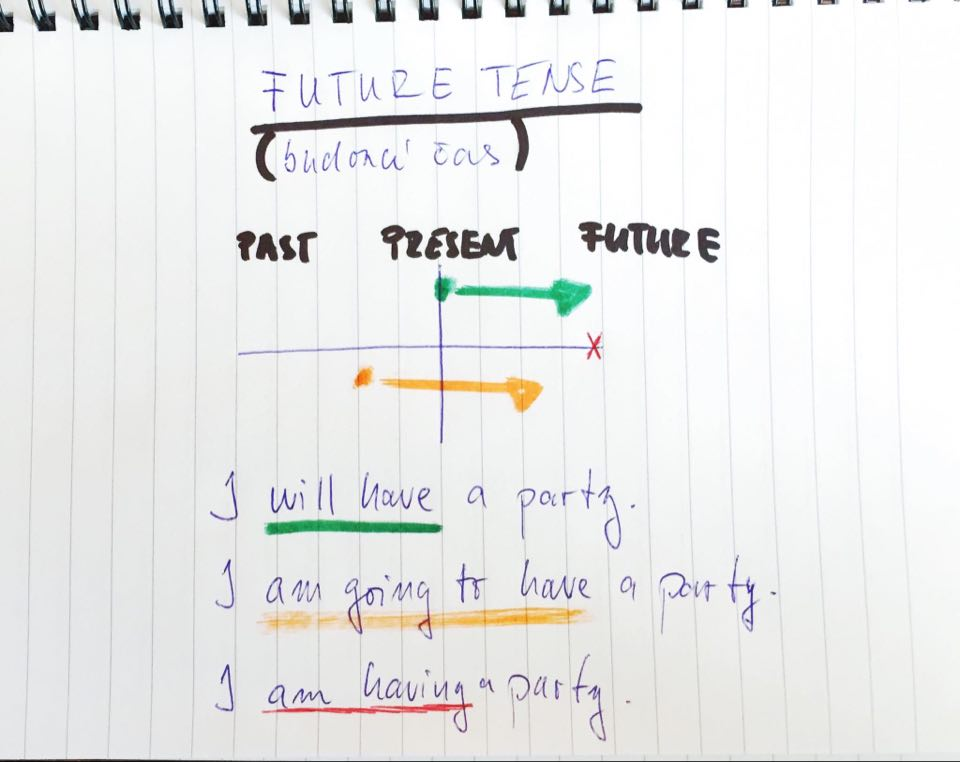 FUTURE TENSE
(budoucí čas)
PAST PRESENT FUTURE
I will have a party.
I am going to have a party.
I am having a party.